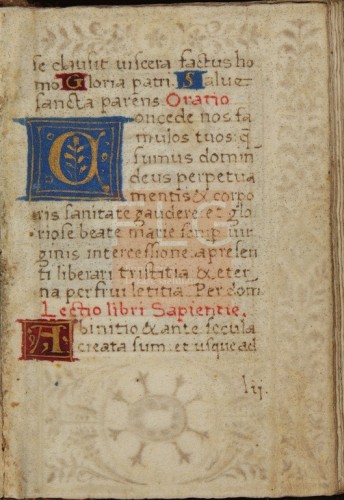 se clausit viscera factus ho
mo. Gloria patri. Salue
sancta parens. Oratio
Concede nos fa
mulos tuos: q̃
sumus domin
deus perpetua
mentis & corpo
ris sanitate gaudere et glo
riose beate marie semp uir
ginis intercessione a presen
ti liberari tristitia & eter
na perfrui letitia. Per dom̃
Lectio libri Sapientie.
Ab initio & ante secula
creata sum: et usque ad
lij